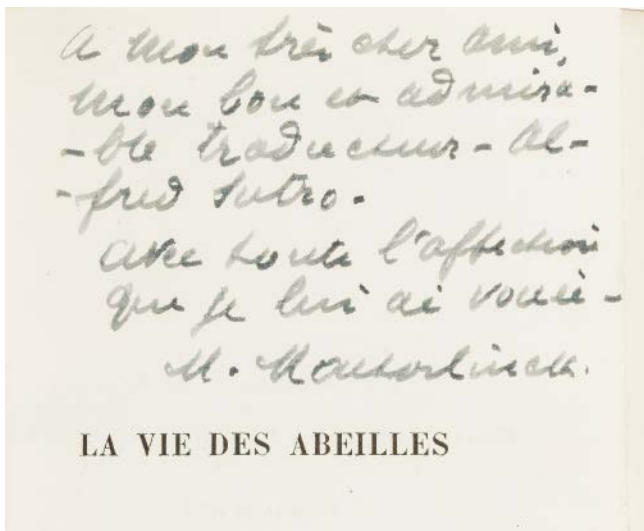 A mon très cher ami,
mon bon et admira-
-ble traducteur - Al-
-fred Sutro.
avec toute l'affection
que je lui ai vouée -
M. Maeterlinck.
LA VIE DES ABEILLES